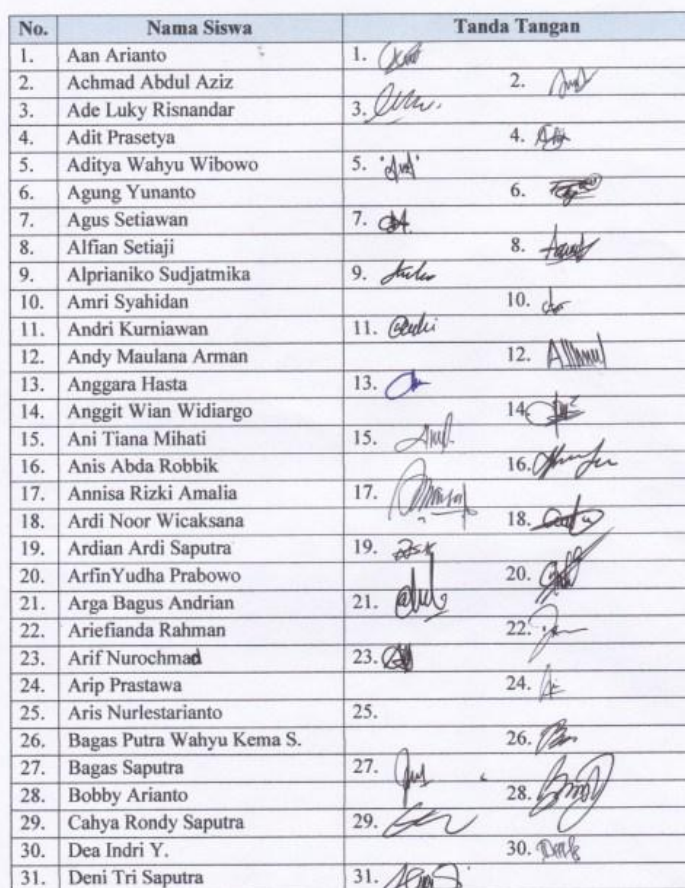 No. Nama Siswa Tanda Tangan
1. Aan Arianto 1.
2. Achmad Abdul Aziz 2.
3. Ade Luky Risnandar 3.
4. Adit Prasetya 4.
5. Aditya Wahyu Wibowo 5.
6. Agung Yunanto 6.
7. Agus Setiawan 7.
8. Alfian Setiaji 8.
9. Alprianiko Sudjatmika 9.
10. Amri Syahidan 10.
11. Andri Kurniawan 11.
12. Andy Maulana Arman 12.
13. Anggara Hasta 13.
14. Anggit Wian Widiargo 14.
15. Ani Tiana Mihati 15.
16. Anis Abda Robbik 16.
17. Annisa Rizki Amalia 17.
18. Ardi Noor Wicaksana 18.
19. Ardian Ardi Saputra 19.
20. ArfinYudha Prabowo 20.
21. Arga Bagus Andrian 21.
22. Ariefianda Rahman 22.
23. Arif Nurochmad 23.
24. Arip Prastawa 24.
25. Aris Nurlestarianto 25.
26. Bagas Putra Wahyu Kema S. 26.
27. Bagas Saputra 27.
28. Bobby Arianto 28.
29. Cahya Rondy Saputra 29.
30. Dea Indri Y. 30.
31. Deni Tri Saputra 31.